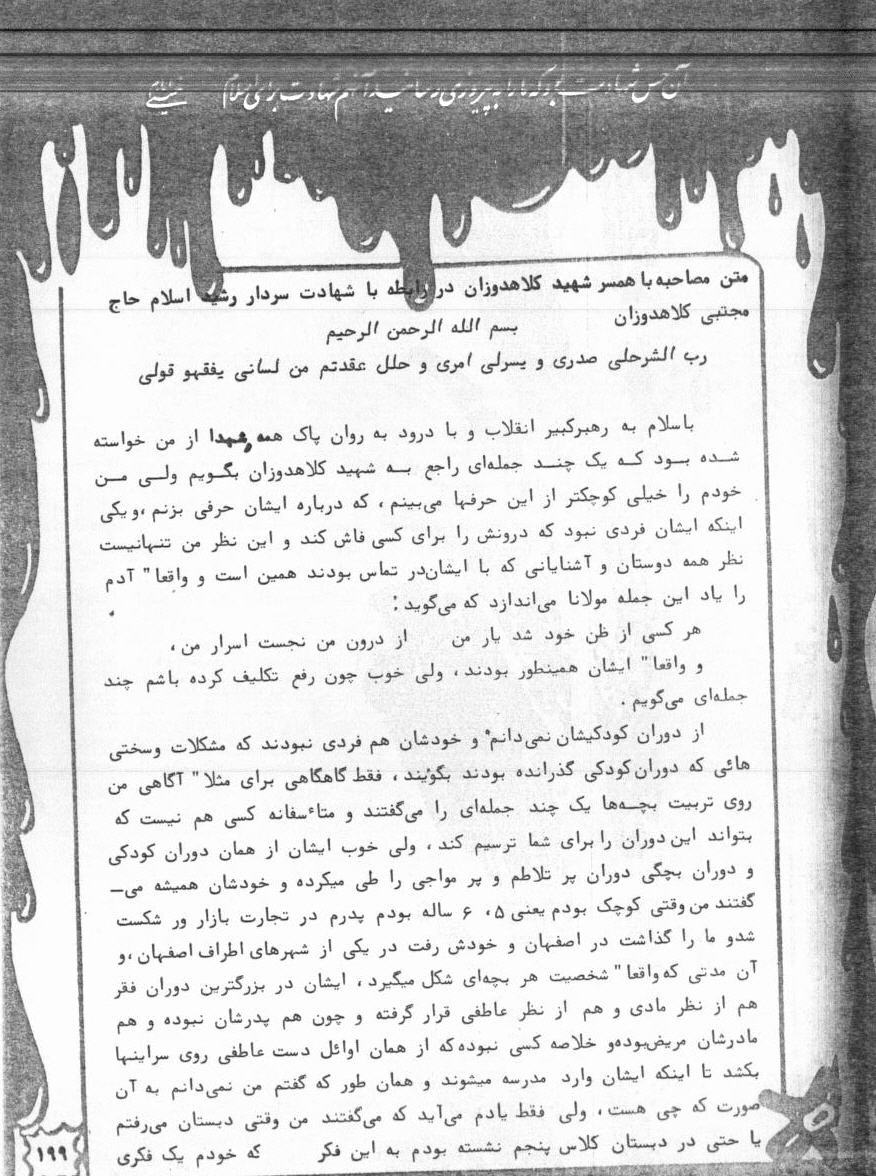 آن حس شهادت بود که ما را به پیروزی رسانید آنهم شهادت برای اسلام خمینی
متن مصاحبه با همسر شهید کلاهدوزان در رابطه با شهادت سردار رشید اسلام حاج
مجتبی کلاهدوزان
بسم الله الرحمن الرحیم
رب الشرحلی صدری و یسرلی امری و حلل عقدتم من لسانی یفقهو قولی
باسلام به رهبرکبیر انقلاب و با درود به روان پاک همه شهدا از من خواسته
شده بود که یک چند جمله‌ای راجع به شهید کلاهدوزان بگویم ولی من
خودم را خیلی کوچکتر از این حرفها می‌بینم ، که درباره ایشان حرفی بزنم ،و یکی
اینکه ایشان فردی نبود که درونش را برای کسی فاش کند و این نظر من تنهانیست
نظر همه دوستان و آشنایانی که با ایشان‌در تماس بودند همین است و واقعا" آدم
را یاد این جمله مولانا می‌اندازد که می‌گوید :
هر کسی از ظن خود شد یار من از درون من نجست اسرار من ،
و واقعا" ایشان همینطور بودند ، ولی خوب چون رفع تکلیف کرده باشم چند
جمله‌ای می‌گویم .
از دوران کودکیشان نمی‌دانم و خودشان هم فردی نبودند که مشکلات وسختی
هائی که دوران کودکی گذرانده بودند بگویند ، فقط گاهگاهی برای مثلا" آگاهی من
روی تربیت بچه‌ها یک چند جمله‌ای را می‌گفتند و متأسفانه کسی هم نیست که
بتواند این دوران را برای شما ترسیم کند ، ولی خوب ایشان از همان دوران کودکی
و دوران بچگی دوران پر تلاطم و پر مواجی را طی میکرده و خودشان همیشه می‌ـ
گفتند من وقتی کوچک بودم یعنی ۵، ۶ ساله بودم پدرم در تجارت بازار ور شکست
شدو ما را گذاشت در اصفهان و خودش رفت در یکی از شهرهای اطراف اصفهان ،و
آن مدتی که واقعا" شخصیت هر بچه‌ای شکل میگیرد ، ایشان در بزرگترین دوران فقر
هم از نظر مادی و هم از نظر عاطفی قرار گرفته و چون هم پدرشان نبوده و هم
مادرشان مریض‌بوده‌و خلاصه کسی نبوده که از همان اوائل دست عاطفی روی سراینها
بکشد تا اینکه ایشان وارد مدرسه میشوند و همان طور که گفتم من نمی‌دانم به آن
صورت که چی هست ، ولی فقط یادم می‌آید که می‌گفتند من وقتی دبستان می‌رفتم
یا حتی در دبستان کلاس پنجم نشسته بودم به این فکر که خودم یک فکری
۱۹۹